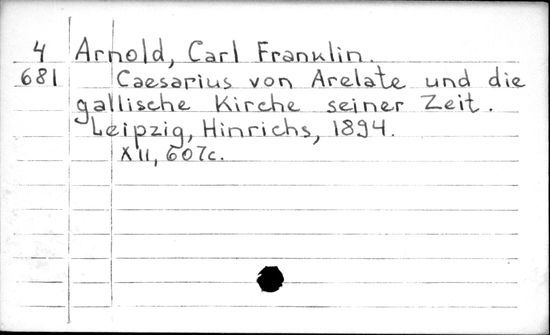 4 Arnold, Carl Franklin.
681 Caesarius von Arelate und die
gallische Kirche seiner Zeit.
Leipzig, Hinrichs, 1894.
XII, 607c.